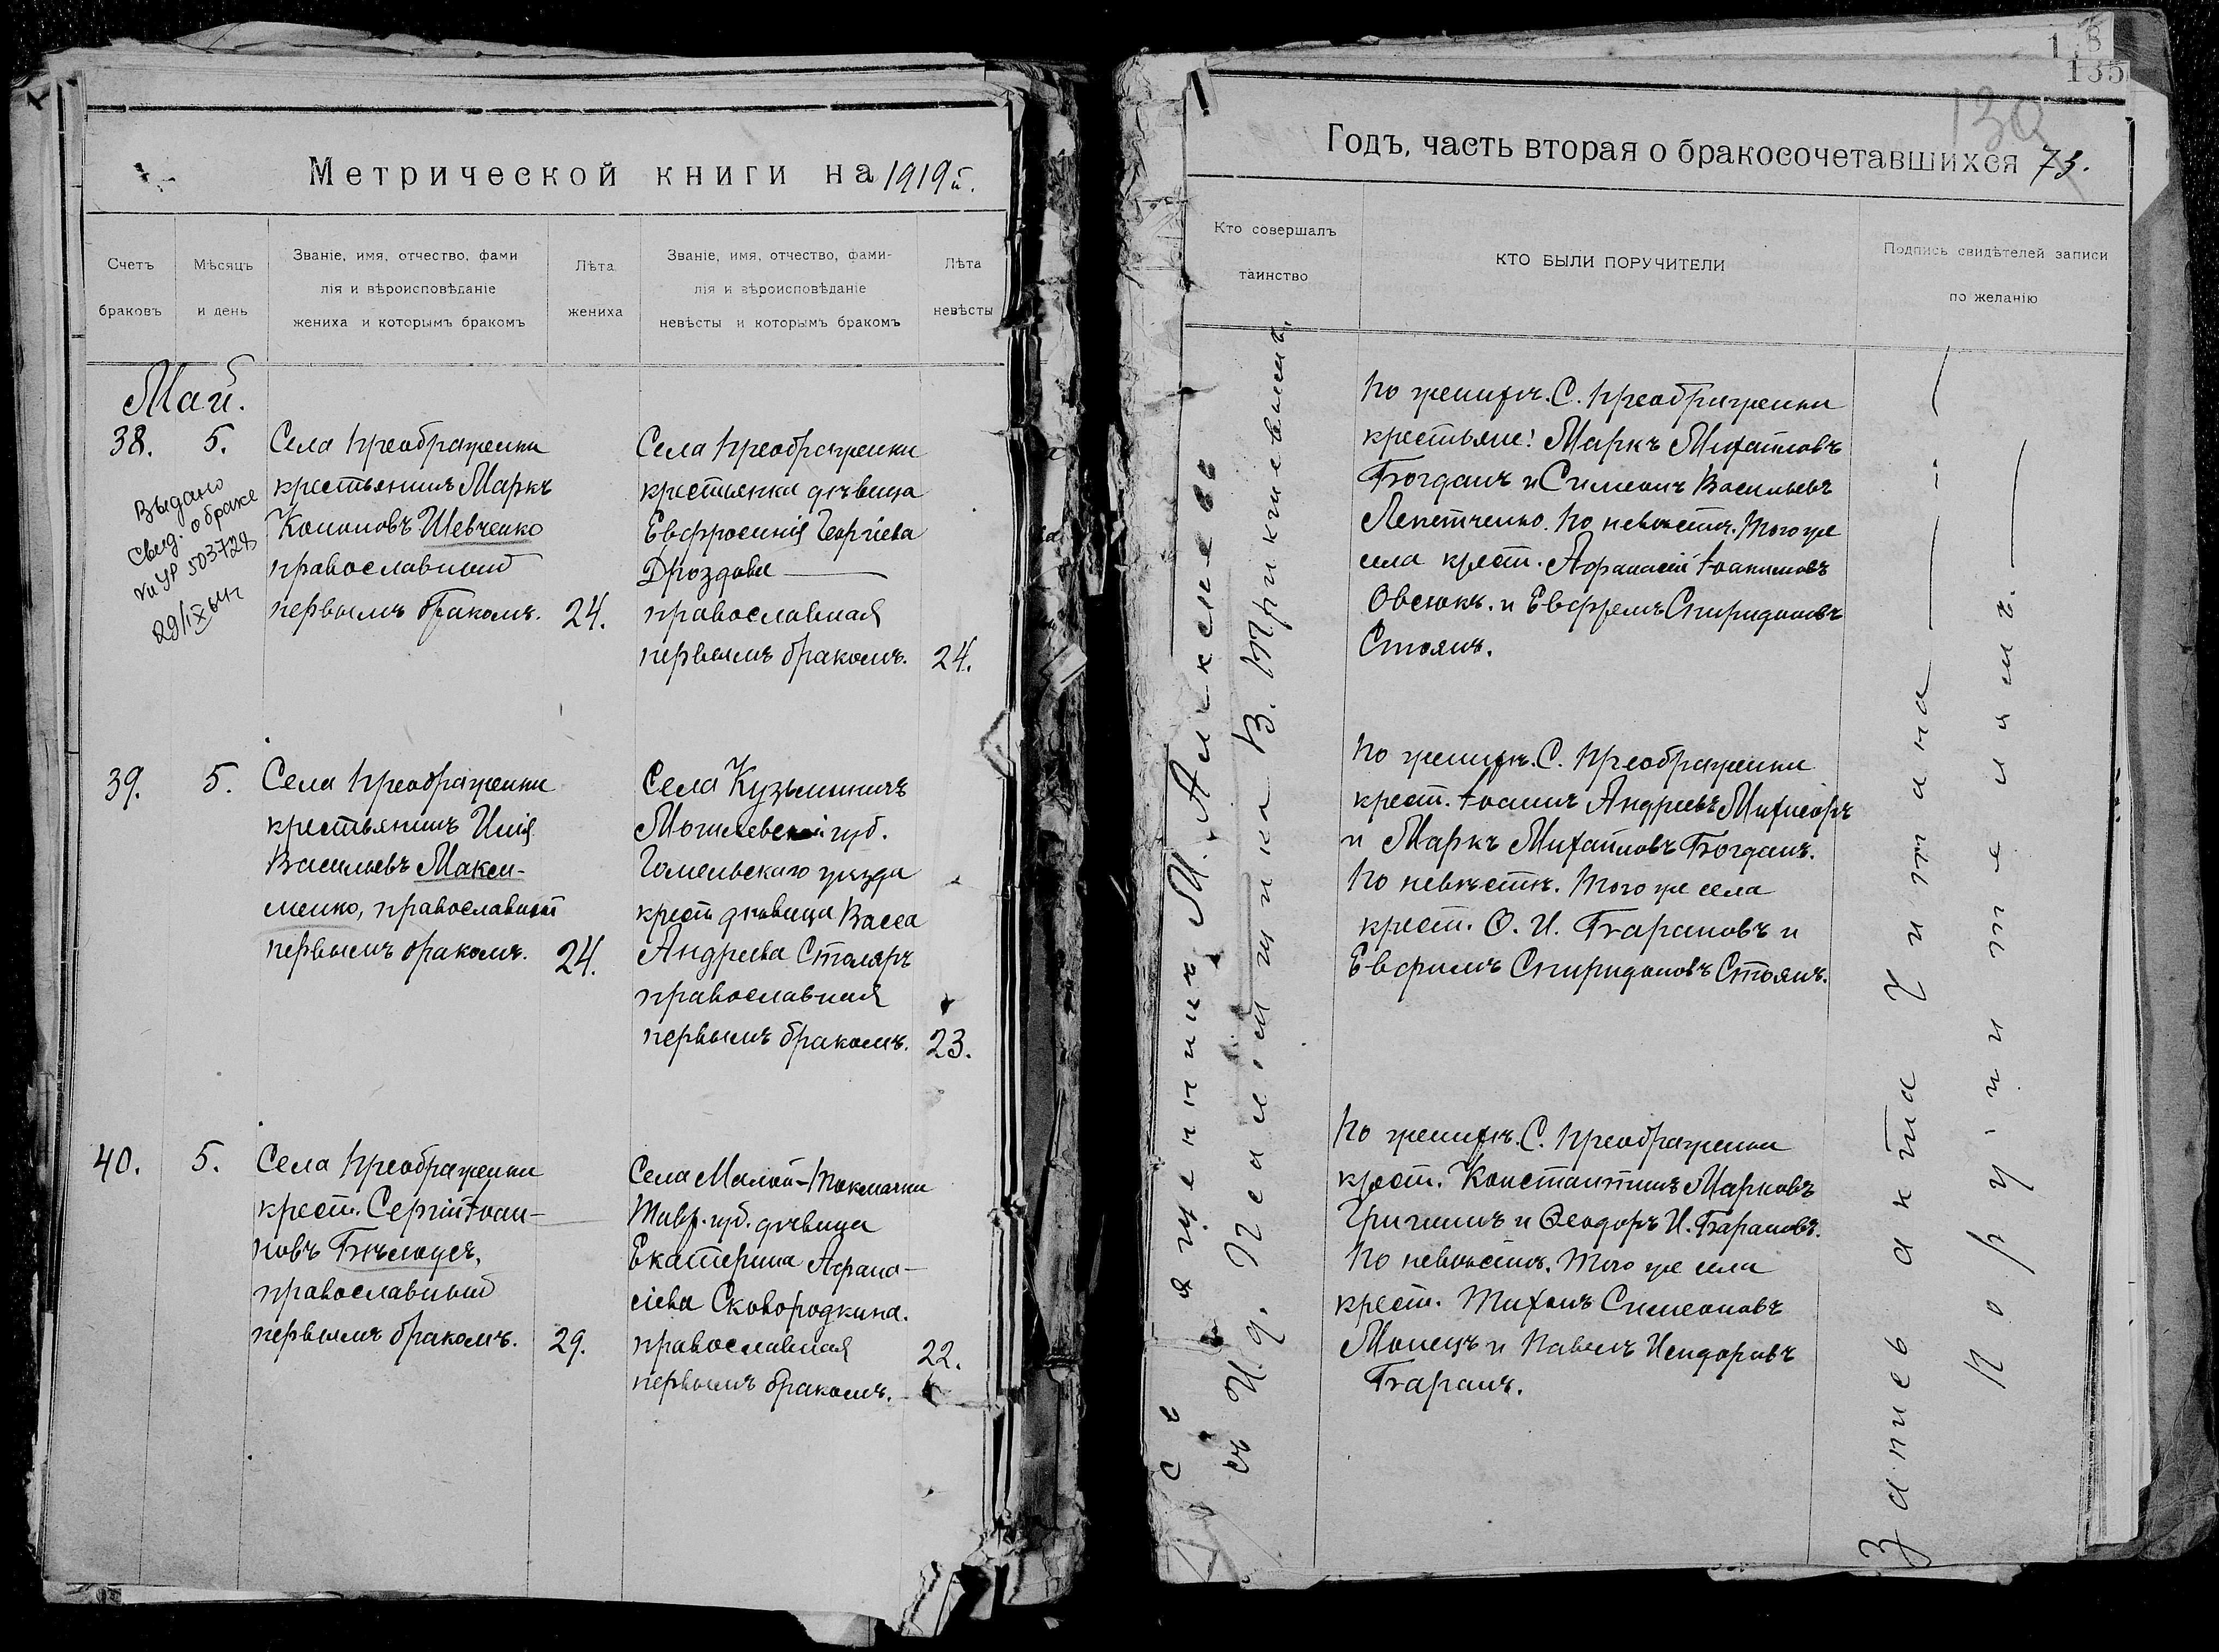 Метрической книги на 1919й.
Счетъ браковъ
Мѣсяцъ и день
Званіе, имя, отчество, фами
лія и вѣроисповѣданіе
жениха и которымъ бракомъ
Лѣта жениха
Званіе, имя, отчество, фами-
лія и вѣроисповѣданіе
невѣсты и которымъ бракомъ
Лѣта невѣсты
Май.
38. 5.
Выдано
свид. о браке
29/IX 64г
Села Преображенки
крестьянинъ Маркъ
Кононовъ Шевченко
православный
первымъ бракомъ. 24.
Села Преображенки
крестьянка дѣвица
Евфросинія Георгіева
Дроздова
православная
первымъ бракомъ. 24.
39. 5.
Села Преображенки
крестьянинъ Илія
Васильевъ Макси-
менко, православный
первымъ бракомъ. 24.
Села Кузьминичъ
Могилевской губ.
Гомельскаго уѣзда
крест. дѣвица Васса
Андреева Столяръ
православная
первымъ бракомъ. 23.
40. 5.
Села Преображенки
крест. Сергій Іоан-
новъ Бѣлоусъ,
православный
первымъ бракомъ. 29.
Села Малой-Токмачки
Тавр. губ. дѣвица
Екатерина Афана-
сіева Сковородкина.
православная 22.
первымъ бракомъ.
135
130
Годъ, часть вторая о бракосочетавшихся 73.
Кто совершалъ
таинство
КТО БЫЛИ ПОРУЧИТЕЛИ
Подпись свидѣтелей записи
по желанію
Священникъ М. Алексѣевъ
съ И. д. Псаломщика В.
По женихѣ. С. Преображенки
крестьяне: Маркъ Михайловъ
Богданъ и Симеонъ Васильевъ
Лепетченко. По невѣстѣ. Того же
села крест. Афанасій Іоакимовъ
Овсюкъ. и Евфремъ Спиридоновъ
Стоянъ.
По женихѣ. С. Преображенки
крест. Іоаннъ Андреевъ
и Маркъ Михайловъ Богданъ.
По невѣстѣ. Того же села
крест. Ѳ. И. Барановъ и
Евфимъ Спиридоновъ Стоянъ.
По женихѣ. С. Преображенки
крест. Константинъ Марковъ
и Ѳеодоръ И. Барановъ.
По невѣстѣ. Того же села
крест. Тихонъ Симеоновъ
и Павелъ Исидоровъ
Баранъ.
Запись акта читана
поручителямъ.